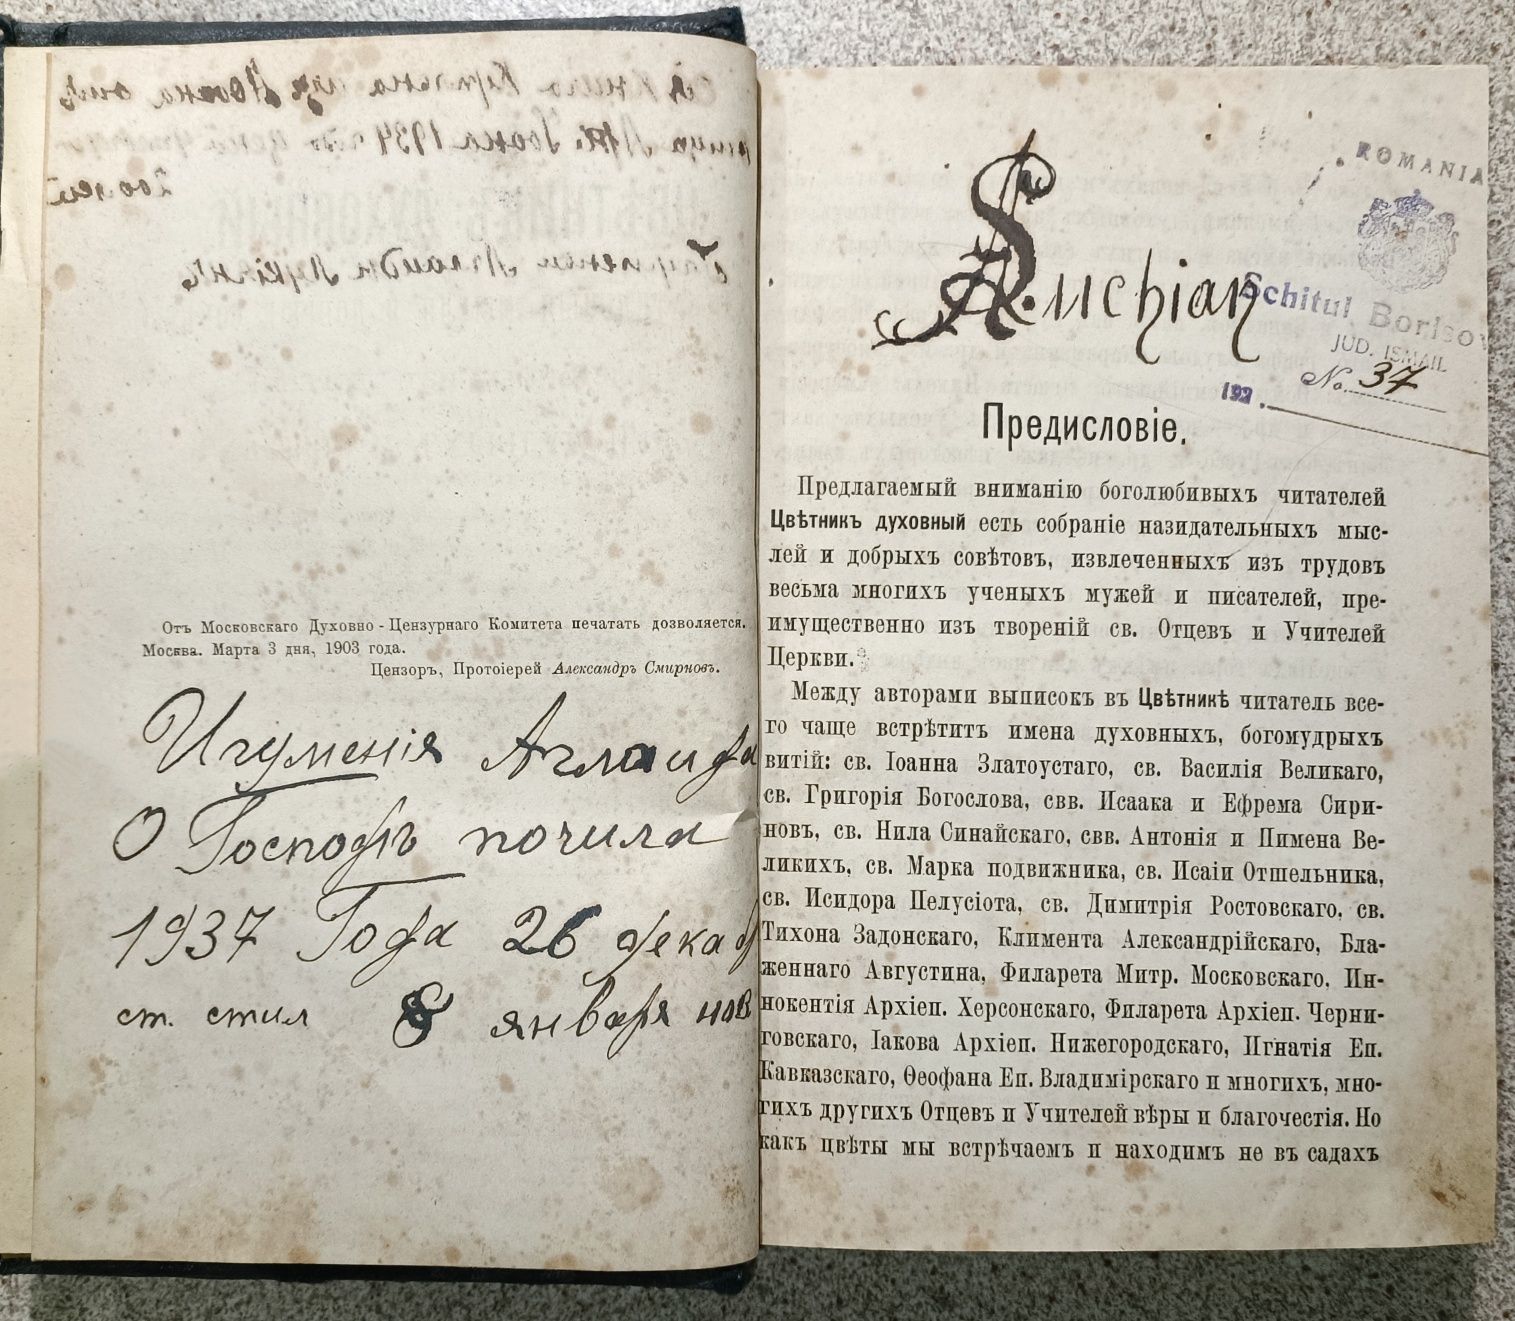 Отъ Московскаго Духовно-Цензурнаго Комитета печатать дозволяется.
Москва. Марта 3 дня, 1903 года.
Цензоръ, Протоіерей Александръ Смирновъ.
Игуменія Аглаида
О Господѣ почила
1937 Года 26 декаб
ст. стил 8 января нов
ROMANIA
Schitul Borisov
JUD. ISMAIL
No. 37
192 .
Предисловіе.
Предлагаемый вниманію боголюбивыхъ читателей
Цвѣтникъ духовный есть собраніе назидательныхъ мыс-
лей и добрыхъ совѣтовъ, извлеченныхъ изъ трудовъ
весьма многихъ ученыхъ мужей и писателей, пре-
имущественно изъ твореній св. Отцевъ и Учителей
Церкви.
Между авторами выписокъ въ Цвѣтникѣ читатель все-
го чаще встрѣтитъ имена духовныхъ, богомудрыхъ
витій: св. Іоанна Златоустаго, св. Василія Великаго,
св. Григорія Богослова, свв. Исаака и Ефрема Сири-
новъ, св. Нила Синайскаго, свв. Антонія и Пимена Ве-
ликихъ, св. Марка подвижника, св. Исаіи Отшельника,
св. Исидора Пелусіота, св. Димитрія Ростовскаго, св.
Тихона Задонскаго, Климента Александрійскаго, Бла-
женнаго Августина, Филарета Митр. Московскаго, Ин-
нокентія Архіеп. Херсонскаго, Филарета Архіеп. Черни-
говскаго, Іакова Архіеп. Нижегородскаго, Игнатія Еп.
Кавказскаго, Ѳеофана Еп. Владимірскаго и многихъ, мно-
гихъ другихъ Отцевъ и Учителей вѣры и благочестія. Но
какъ цвѣты мы встрѣчаемъ и находимъ не въ садахъ